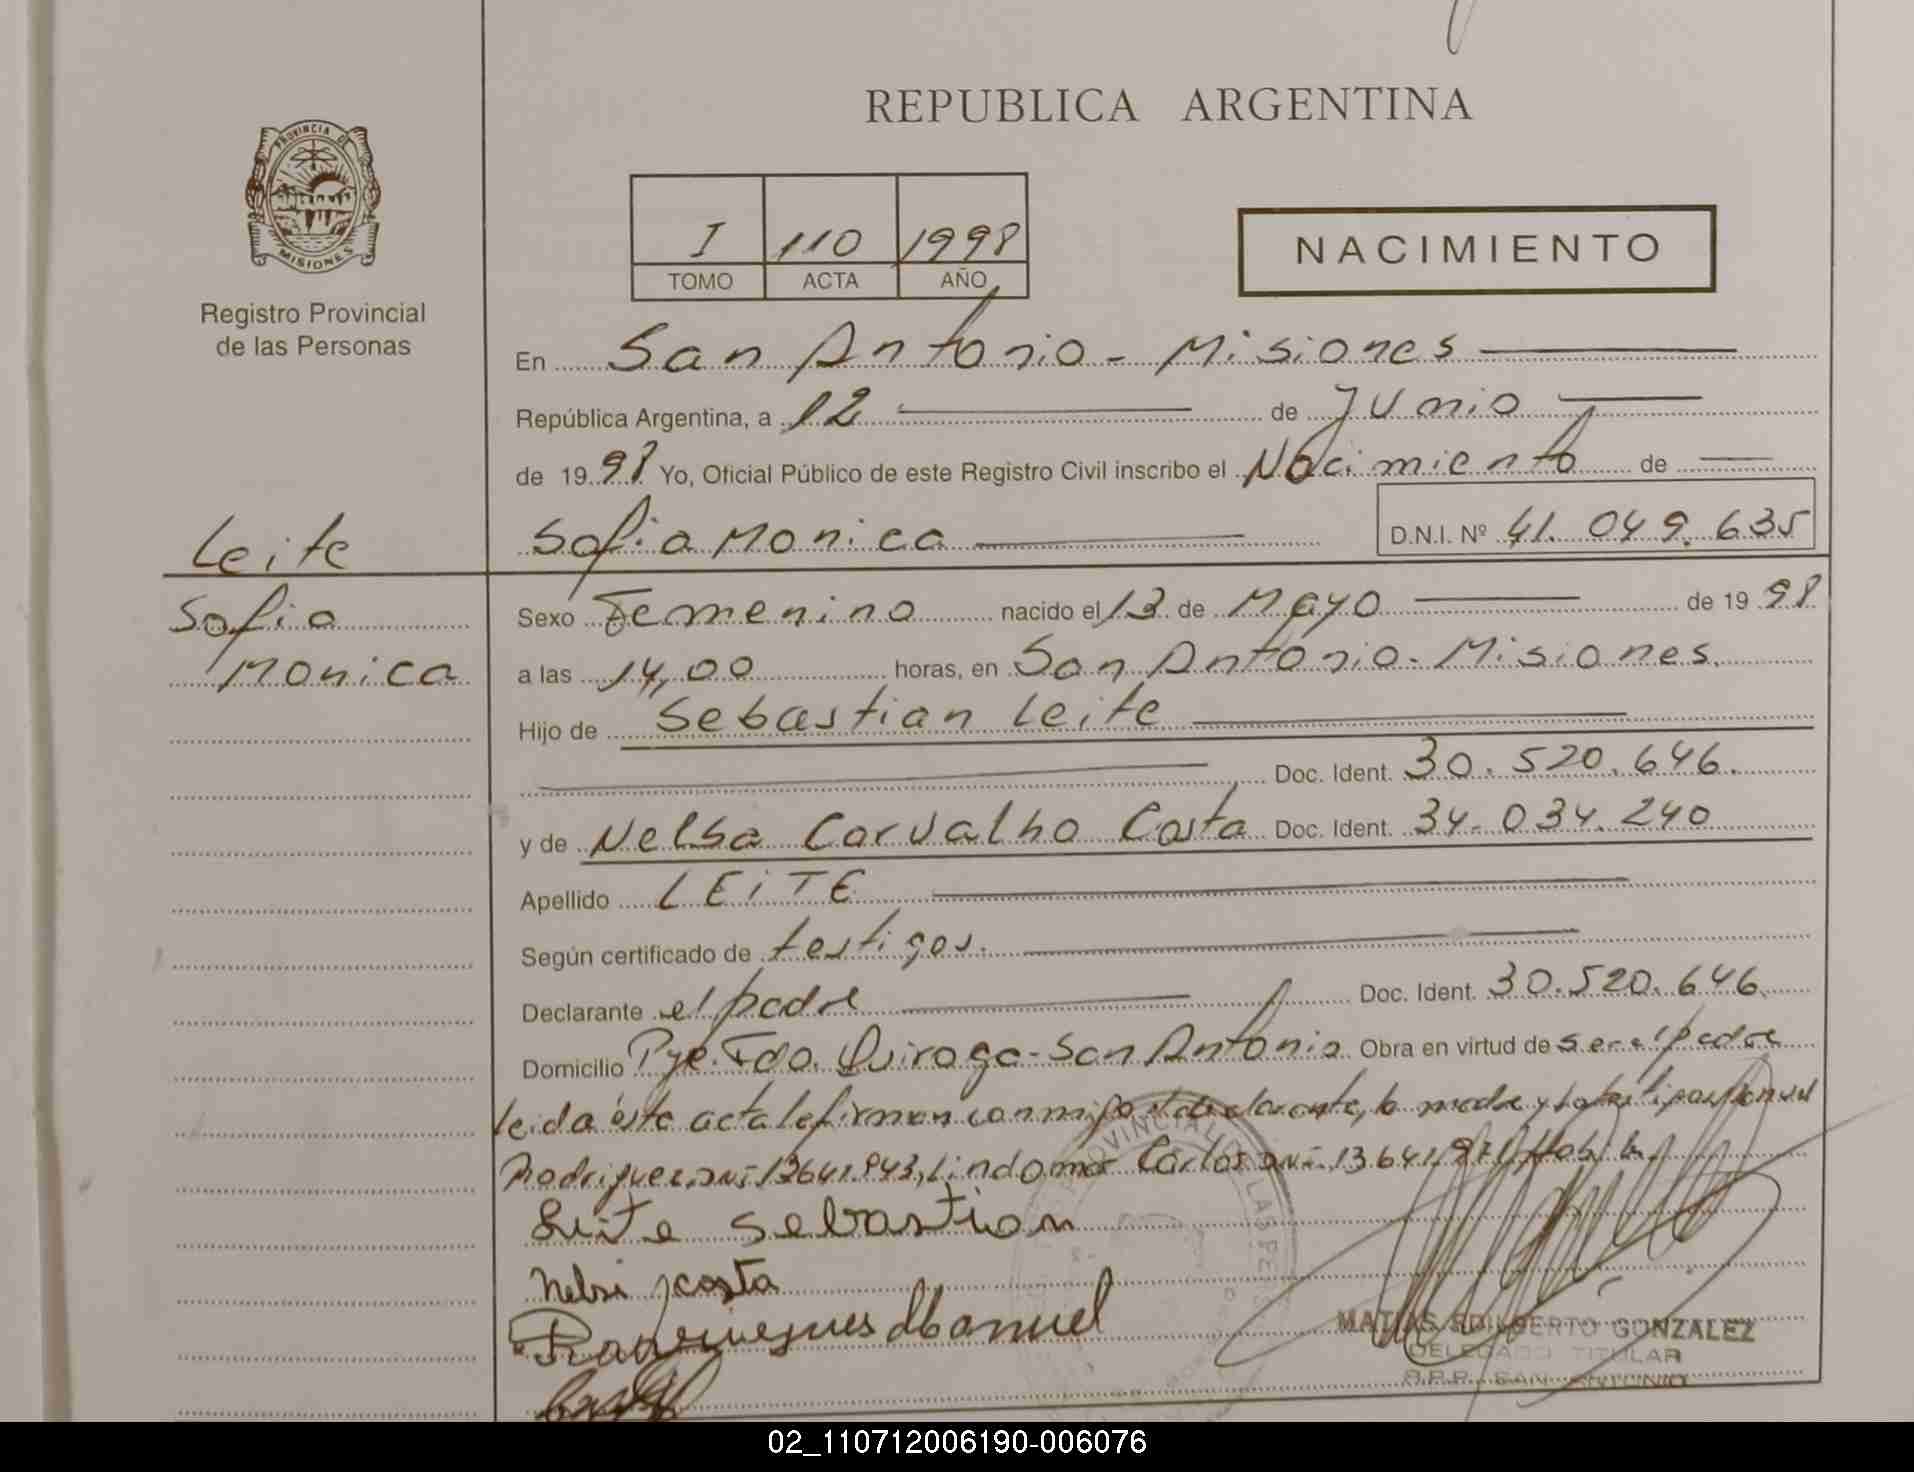 PROVINCIA DE
MISIONES
Registro Provincial
de las Personas
REPUBLICA ARGENTINA
I 110 1998
TOMO ACTA AÑO
NACIMIENTO
En San Antonio - Misiones
República Argentina, a 12 de Junio
de 1998 Yo, Oficial Público de este Registro Civil inscribo el Nacimiento de
Leite
Sofia Monica D.N.I. Nº 41.049.635
Sofia
Monica
Sexo Femenino nacido el 13 de Mayo de 1998
a las 14,00 horas, en San Antonio - Misiones.
Hijo de Sebastian Leite
Doc. Ident. 30.520.646.
y de Nelsa Carvalho Costa Doc. Ident. 34.034.240
Apellido LEITE
Según certificado de testigos.
Declarante el padre Doc. Ident. 30.520.646.
Domicilio Pje. Fdo. Quiroga - San Antonio Obra en virtud de ser el padre
leida ésta acta le firman conmigo el declarante, la madre y
Rodriguez, DNI- 13641.943, Lindomar Carlos DNI-
Leite Sebastian
costa
Manuel
MATIAS EDILBERTO GONZALEZ
DELEGADO TITULAR
R.P.P. SAN ANTONIO
02_110712006190-006076